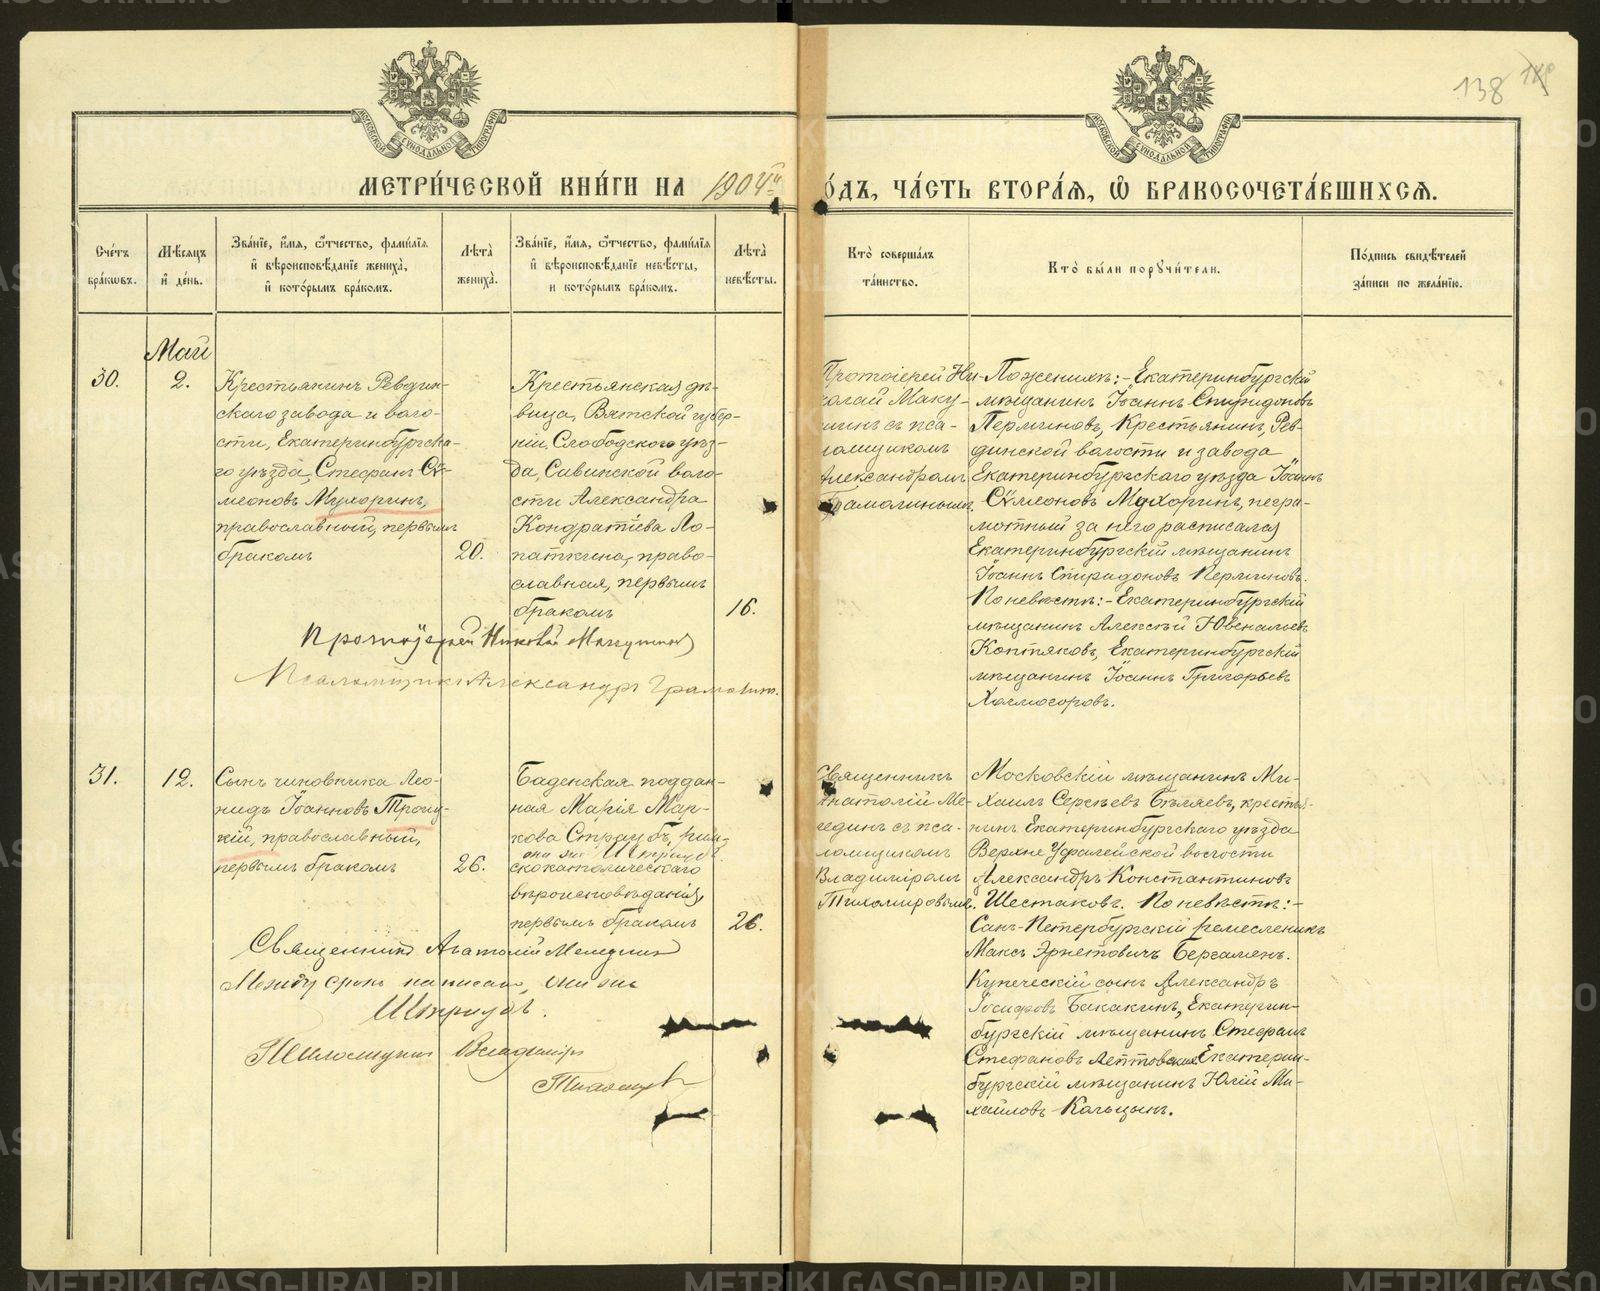 138
МЕТРИ́ЧЕСКОЙ КНИ́ГИ НА 1904й
О́ДЪ, ЧА́СТЬ ВТОРА́Я, Ѿ БРАКОСОЧЕТА́ВШИХСЯ.
Сче́тъ
бра́ковъ.
Мѣ́сяцъ
и де́нь.
Зва́нїе, и́мя, ѻ҆́тчество, фами́лїя
и҆ вѣроисповѣ́данїе жениха̀,
и҆ кото́рымъ бра́комъ.
Лѣ́та
жениха̀.
Зва́нїе, и́мя, ѻ҆́тчество, фами́лїя
и҆ вѣроисповѣ́данїе невѣ́сты,
и кото́рымъ бра́комъ.
Лѣ́та
невѣ́сты.
Кто̀ соверша́лъ
та́инство.
Кто̀ бы́ли пор𐤏учи́тели.
По́дпись свидѣ́телей
за́писи по жела́нїю.
Май
30.
2.
Крестьянинъ Ревдин-
скаго завода и воло-
сти, Екатеринбургска-
го уѣзда, Стефанъ Сѵ-
меоновъ Мухоринъ,
православный, первымъ
бракомъ
20.
Крестьянская дѣ-
вица, Вятской губер-
ніи, Слободского уѣз-
да, Савинской воло-
сти Александра
Кондратіева Ло-
паткина, право-
славная, первымъ
бракомъ
16.
Протоіерей Ни-
колай Маку-
шинъ съ пса-
ломщикомъ
Александромъ
Грамолинымъ
По женихѣ:- Екатеринбургскій
мѣщанинъ Іоаннъ Спиридоновъ
Перминовъ, Крестьянинъ, Рев-
динской волости и завода
Екатеринбургскаго уѣзда Іоаннъ
Сѵмеоновъ Мухоринъ, негра-
мотный за него расписался
Екатеринбургскій мѣщанинъ
Іоаннъ Спиридоновъ Перминовъ.
По невѣстѣ:- Екатеринбургскій
мѣщанинъ Алексѣй Ювенальевъ
Коптяковъ, Екатеринбургскій
мѣщанинъ Іоаннъ Григорьевъ
Холмогоровъ.
Протоіерей Николай Макушинъ
Псаломщикъ Александръ Грамолинъ.
31.
12.
Сынъ чиновника Лео-
нидъ Іоанновъ Троиц-
кій, православный,
первымъ бракомъ
26.
Баденская поддан-
ная Марія Мар-
кова Страубъ, рим-
она же Штраубъ
скокатолическаго
вѣроисповѣданія,
первымъ бракомъ
26.
Священникъ
Анатолій Ме-
лединъ съ пса-
ломщикомъ
Владиміромъ
Тихомировымъ.
Московскій мѣщанинъ Ми-
хаилъ Сергѣевъ Бѣляевъ, крестья-
нинъ Екатеринбургскаго уѣзда
Верхне Уфалейской волости
Александръ Константиновъ
Шестаковъ. По невѣстѣ:-
Санъ-Петербургскій ремесленникъ
Максъ Эрнестовичъ Бергаменъ.
Купеческій сынъ Александръ
Іосифовъ Бакакинъ, Екатерин-
бургскій мѣщанинъ Стефанъ
Стефановъ Екатерин-
бургскій мѣщанинъ Юлій Ми-
хайловъ Кальцынъ.
Священникъ Анатолій Мелединъ
Между срокъ написан. она же
Штраубъ.
Псаломщикъ Владиміръ
Тихомировъ
METRIKI.GASO-URAL.RU